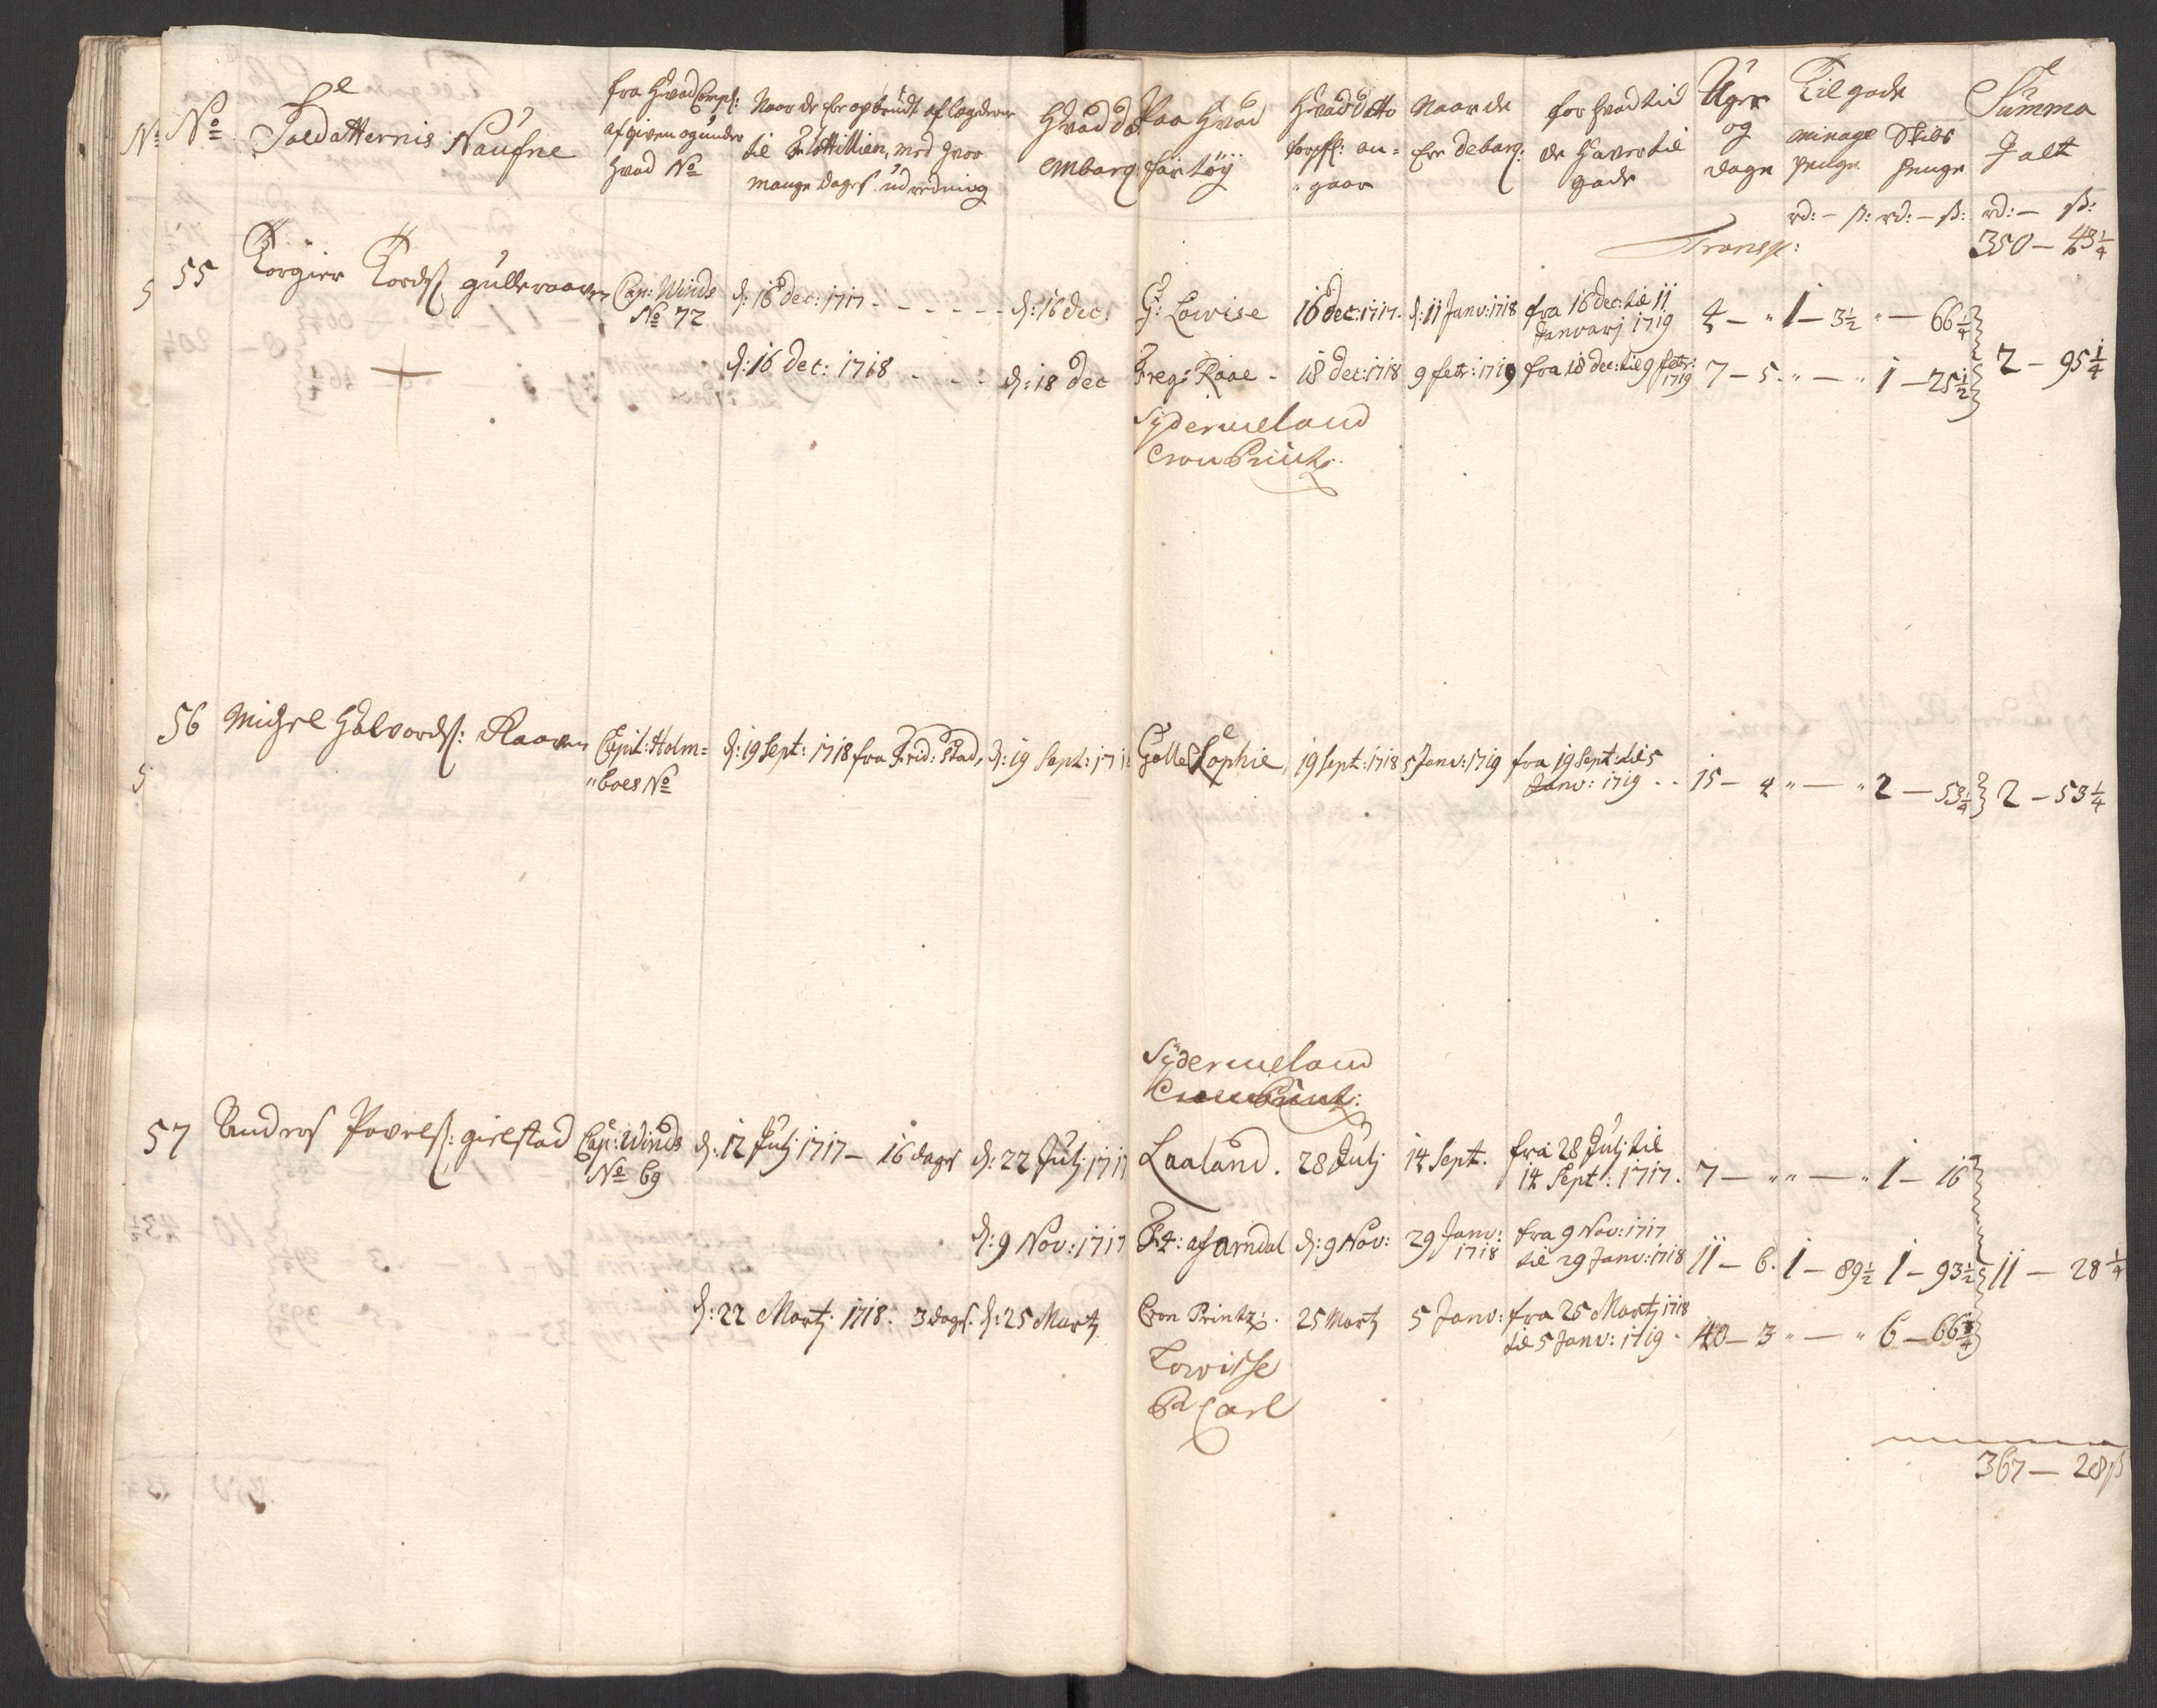 No No Soldatternis Naufne
fra Hvad Comp:
afgiven og under
hvad No
Naar de ere opbrudt af lægderne
til Flottillien, med hvor
mange dages udredning
Hvad dato
embarq
Paa Hvad
fartöÿ
Hvad datto
forpfl: an=
gaar
Naar de
ere debarq:
for hvad tid
de Haver til
gode
Uger
og
dage
Til gode
minage Skibs
penge penge
Summa
I alt
rd: – ß: rd: – ß: rd: – ß:
Transp: 350 – 43 1/4
5 55 Torgier Tordß gulleraaven Cap: Winds d: 16 dec: 1717 - - - - - d: 16 dec: G: Lowise 16 dec: 1717 d: 11 Janv: 1718 fra 16 dec: til 11 4 – " 1 – 3 1/2 " – 66 1/4
No 72 Janvarj 1719
d: 16 dec: 1718 - - - d: 18 dec Freg: Raae - 18 dec: 1718 9 febr: 1719 fra 18 dec: til 9 febr: 1719 7 – 5 " – " 1 – 25 1/2 2 – 95 1/4
Sÿdermeland
Cron Printz
56 Michel Halvordß: Raaven Capit: Holm= d: 19 Sept: 1718 fra Frid: Stad, d: 19 Sept: 171 Galle Sophie, 19 Sept: 1718 5 Janv: 1719 fra 19 Sept: til 5
5 "boes No Janv: 1719 - - 15 – 4 " – " 2 – 53 1/4 2 – 53 1/4
Sÿdermeland
Cron Printz:
57 Andres Povelß: gielstad Cap: Winds d: 12 Julj 1717 – 16 dages d: 22 Julj 1717 Laaland. 28 Julj 14 Sept. fra 28 Julj til
No 69 14 Sept: 1717. 7 – " " – " 1 – 16
d: 9 Nov: 1717 Fr: af Arndal d: 9 Nov: 29 Janv: 1718 fra 9 Nov: 1717
til 29 Janv: 1718 11 – 6. 1 – 89 1/2 1 – 93 1/2 11 – 28 1/4
d: 22 Martj 1718. 3 dages. d: 25 Martj Cron Printz: 25 Martj 5 Janv: fra 25 Martj 1718
til 5 Janv: 1719 - 40 – 3 " – " 6 – 66 3/4
Lowisse
Pr Carl
367 – 28 ß